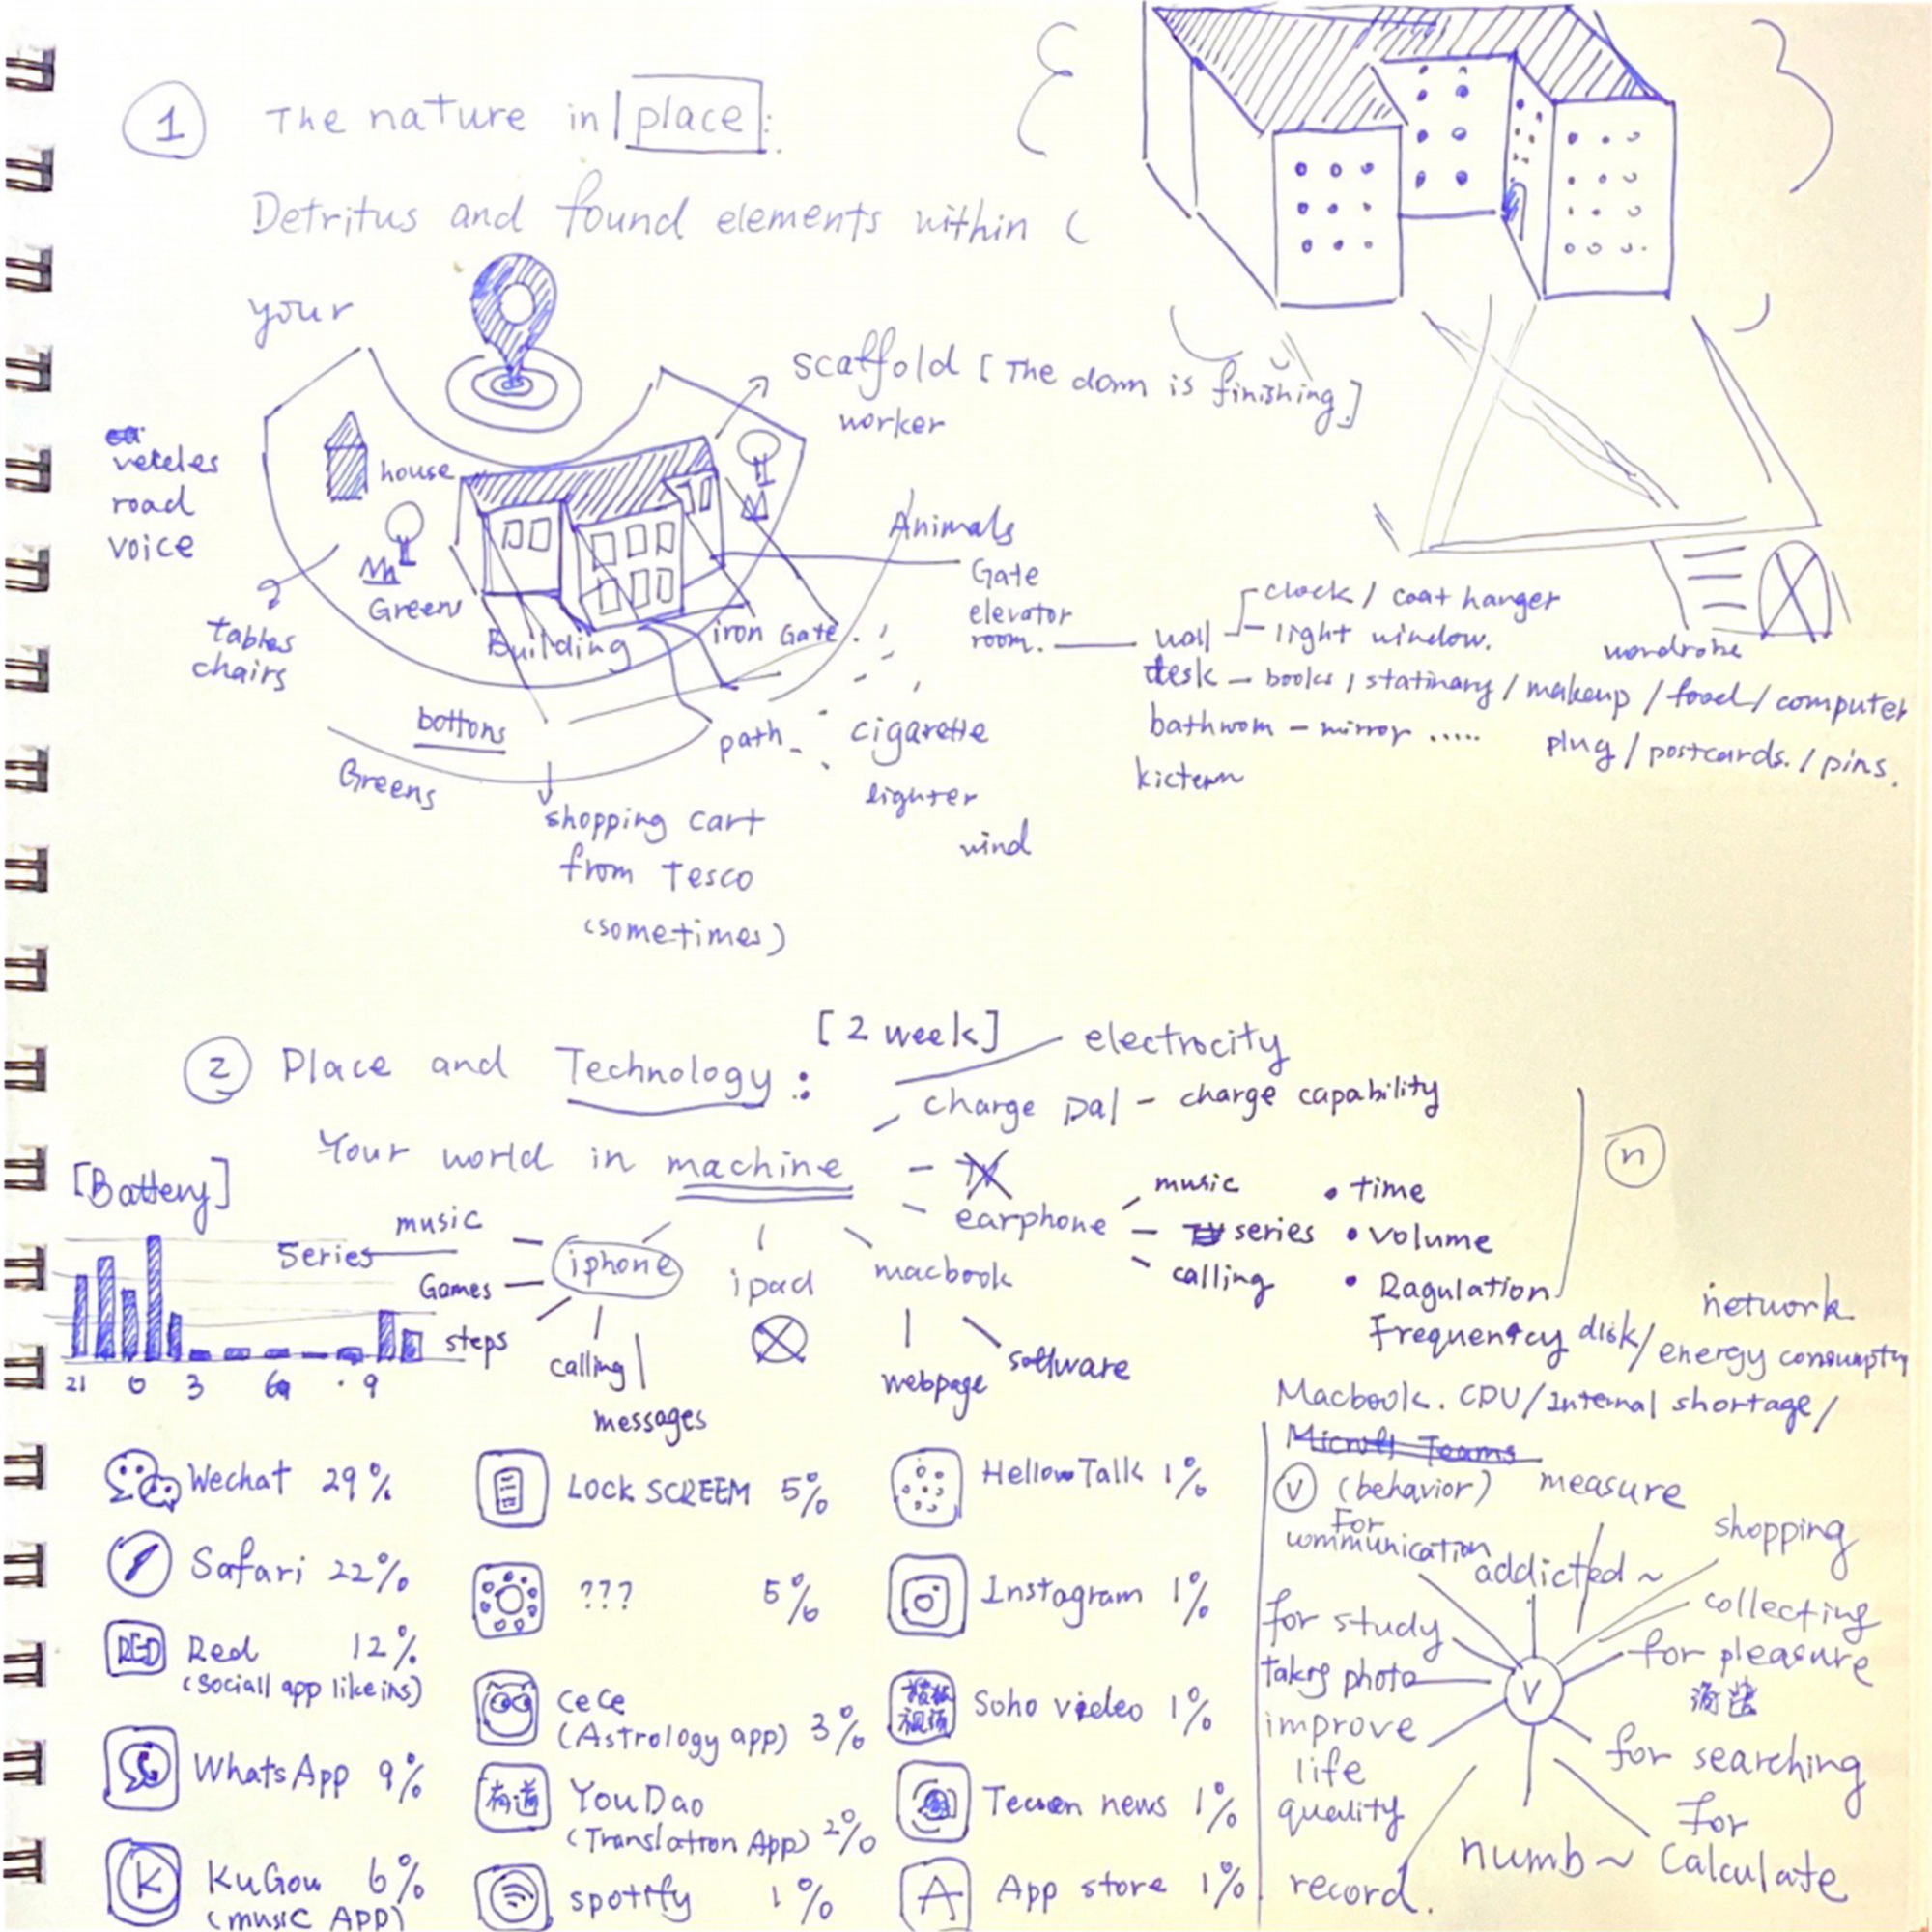 1 The nature in place:
Detritus and found elements within
your
scaffold [The dorm is finishing.]
worker
veteles
road
voice
house
Greens
Building
iron Gate.
Animals
Gate
elevator
room.
tables
chairs
bottons
Greens
path
cigarette
lighter
wind
shopping cart
from Tesco
(sometimes)
wall
clock / coat hanger
light window.
wordrobe
desk - books / statinary / makeup / food / computer
bathroom - mirror .....
plug / postcards. / pins.
[2 week]
2 Place and Technology:
electrocity
charge pal - charge capability
Your world in machine
TV
[Battery]
21 0 3 9
music
Series
Games
steps
iphone
calling
messages
ipad
macbook
webpage
software
earphone
music
series
calling
• time
• volume
• Ragulation
Frequency
n
network
disk/ energy
Macbook. CPU/Internal shortage/
Teams
V (behavior)
measure
For
communication
addicted ~
shopping
collecting
for pleasure
for searching
For
Calculate
numb ~
record.
for study
improve
life
quality
photo
V
Wechat 29%
Safari 22%
RED Red 12%
(Sociall app like ins)
WhatsApp 9%
K KuGou 6%
(music APP)
LOCK SCREEM 5%
??? 5%
CeCe
(Astrology app) 3%
有道 YouDao
(Translation App) 2%
spotify 1%
HellowTalk 1%
Instagram 1%
视频 Soho video 1%
news 1%
A App store 1%